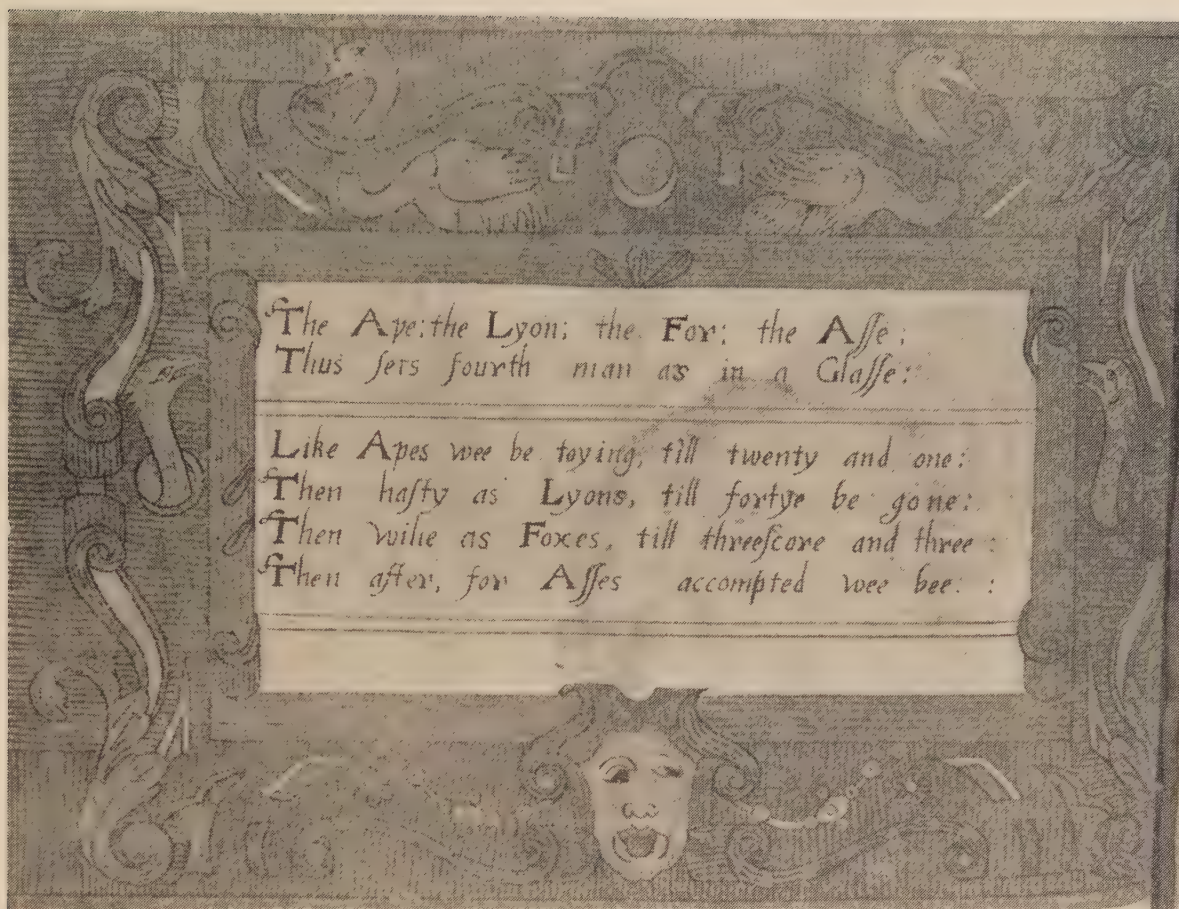 The Ape; the Lyon; the For; the Aſſe;
Thus ſets fourth man as in a Glaſſe:
Like Apes wee be toying, till twenty and one:
Then haſty as Lyons, till fortye be gone:
Then wilie as Foxes, till threeſcore and three:
Then after, for Aſſes accompted wee bee: